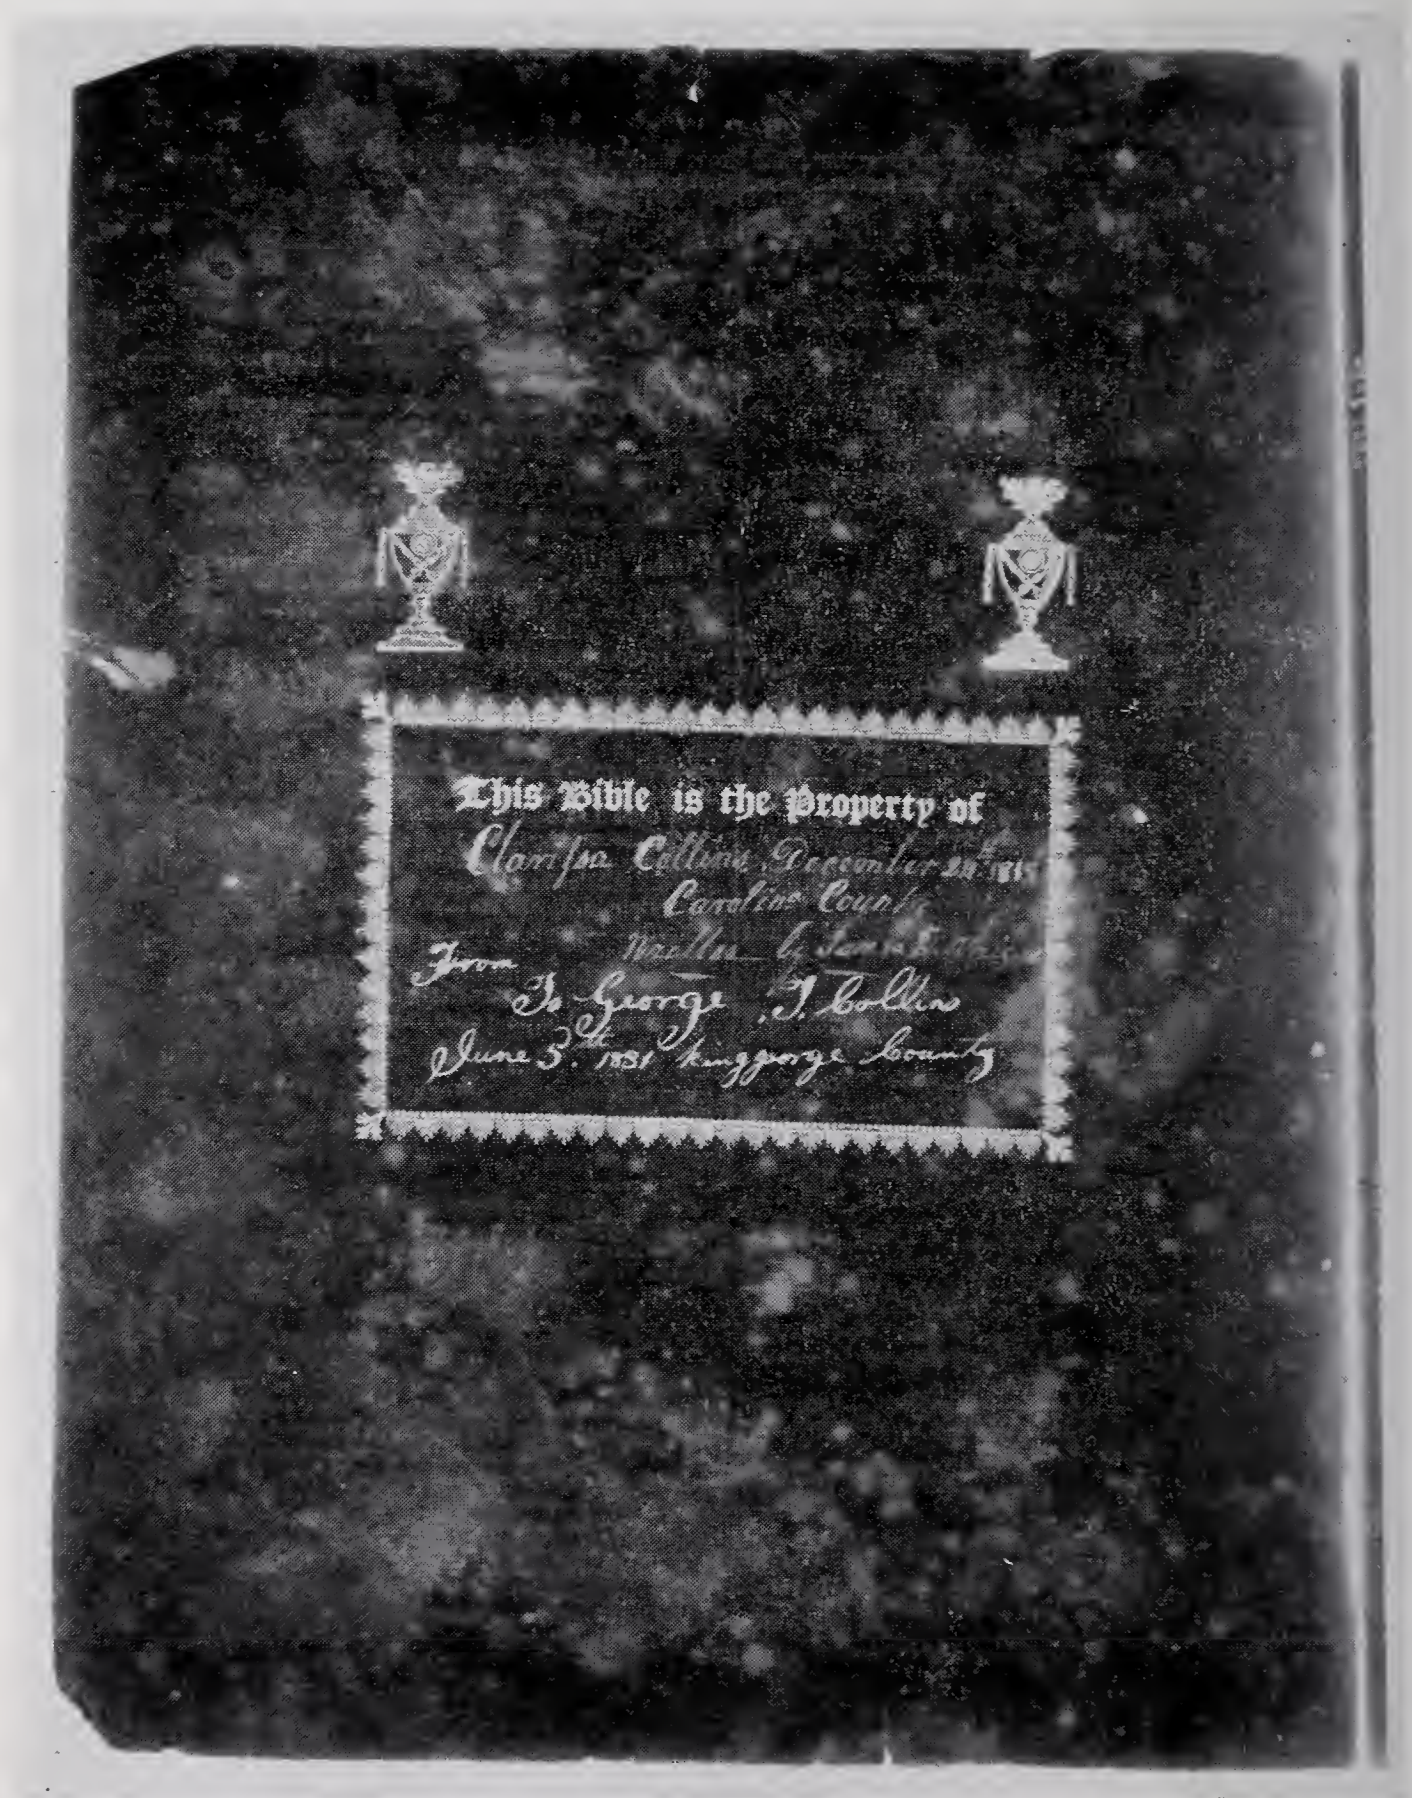 This Bible is the Property of
Clarissa Collins December 24th
Caroline County
by
From
To George T. Collins
June 3th 1851 kinggeorge County